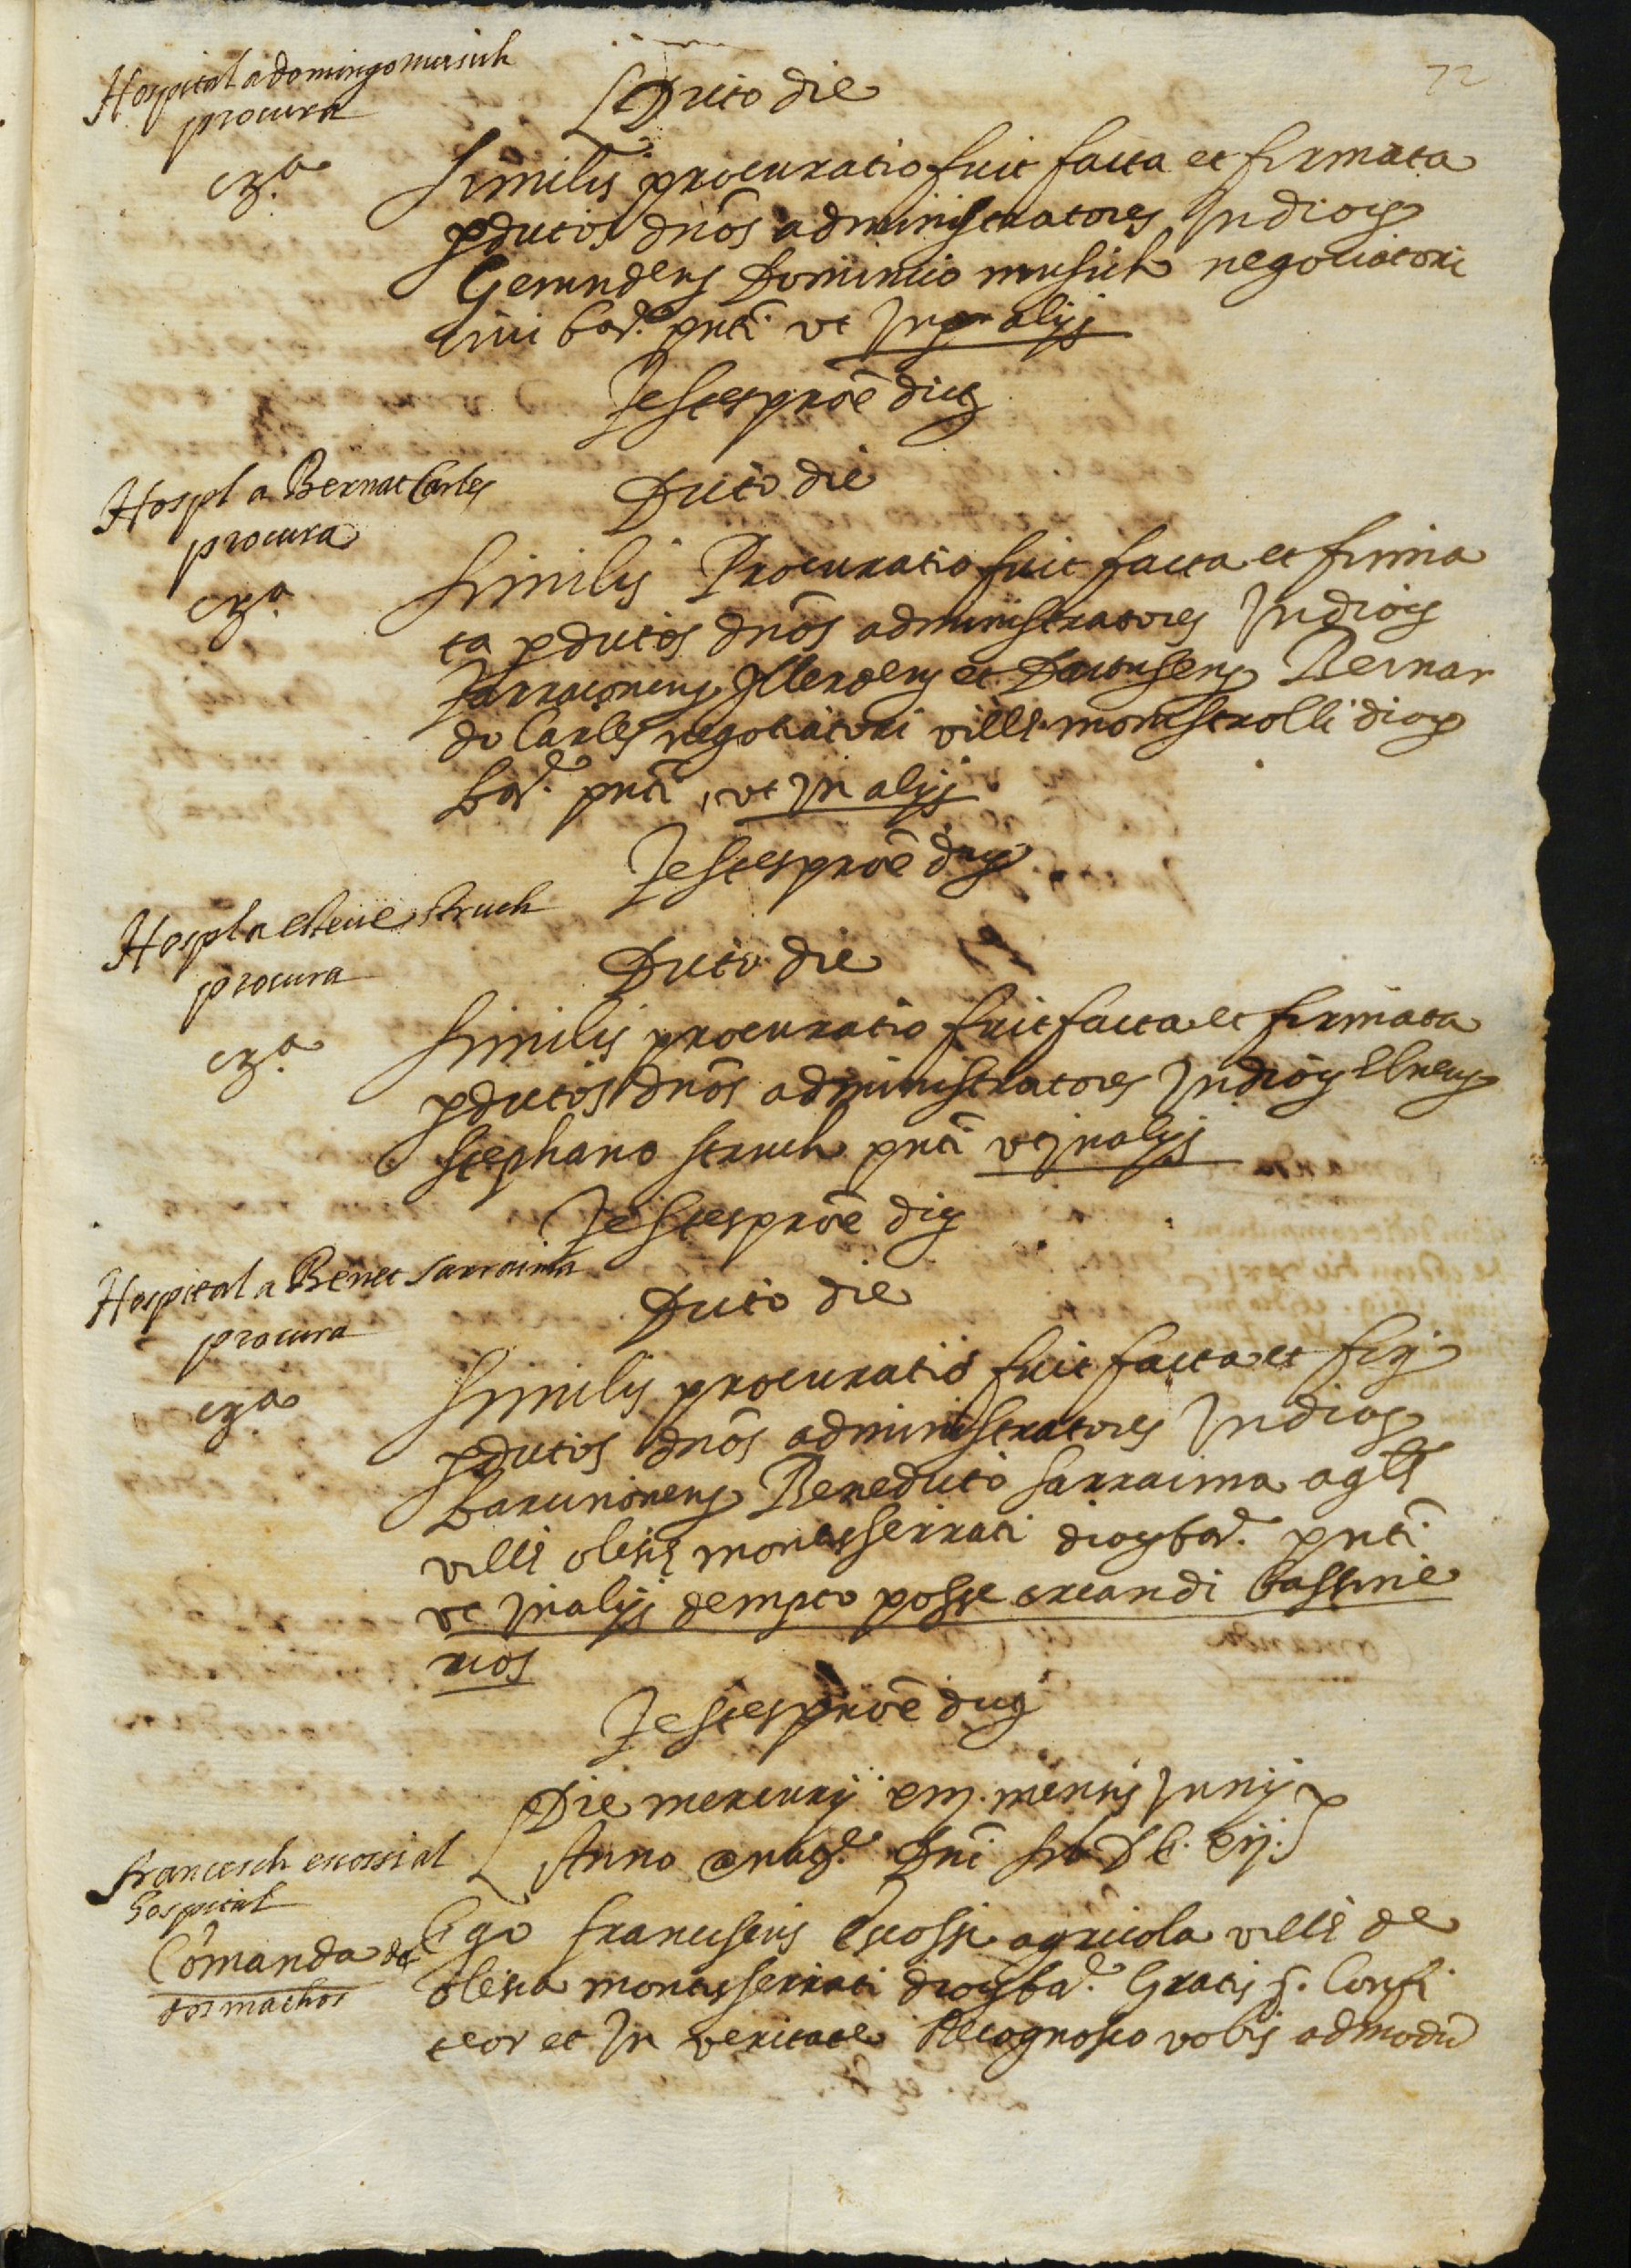 72
Hospital a domingo musich
procura
cza
Dicto die
Similis procuratio fuit facta et firmata
p dictos dnos administratores In dioc
Gerunden Dominico musich negociatori
civi bar. pnti ut In alijs
Testes proxe dicti
Hospl a Bernat Carles
procura
cza
Dicto die
Similis Procuratio fuit facta et firma
ta p dictos dnos administratores In dioc
Tarraconen Illerden et Bernar
do Carles negotiatori ville monistrolli dioc
bar. pnti ut In alijs
Testes proxe dicti
Hospl a esteve struch
procura
cza
Dicto die
Similis procuratio fuit facta et firmata
p dictos dnos administratores In dioc Elnen
stephano struch pnti ut In alijs
Testes proxe dicti
Hospital a Benet Sarraima
procura
cza
Dicto die
Similis procuratio fuit facta et fir
p dictos dnos administratores In dioc
barcinonen Benedicto sarraima agle
ville olesie montisserrati dioc bar. pnti
ut In alijs dempto posse creandi bassine
rios
Testes proxe dicti
Die mercurij mensis Junij
Anno a nat. Dni
francesch escossi al
hospital
Comanda de
dos machos
Ego franciscus Escossi agricola ville de
olesia montisserrati dioc bar. Gratis s. Confi
teor et In veritate Recognosco vobis admodu